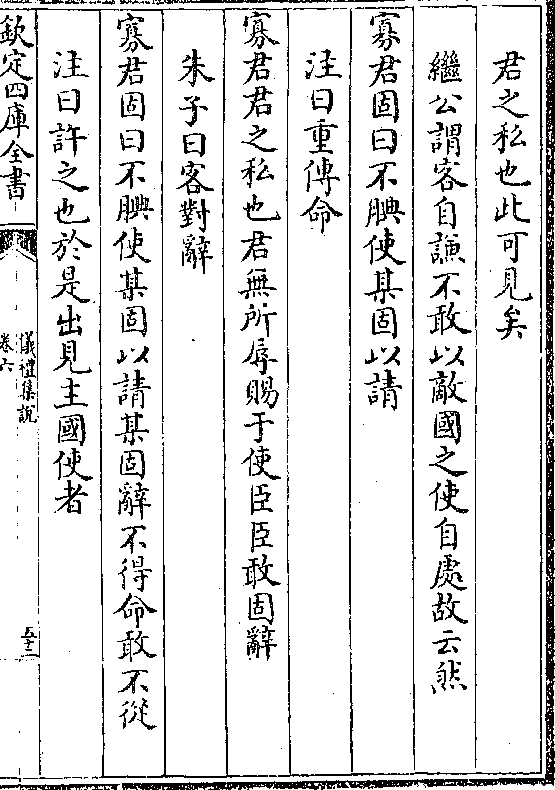 君之私也此可見矣
繼公謂客自謙不敢以敵國之使自處故云然
寡君固曰不腆使某固以請
注曰重傳命
寡君君之私也君無所辱賜于使臣臣敢固辭
朱子曰客對辭
寡君固曰不腆使某固以請某固辭不得命敢不從
注曰許之也於是出見主國使者
欽定四庫全書
儀禮集說
卷六